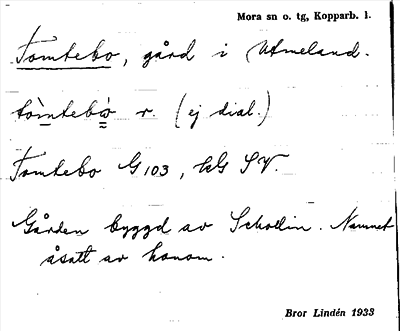 Mora sn o. tg, Kopparb. l.
Tomtebo, gård i Utmeland.
tòmtebò r. (ej dial.)
Tomtebo G 103, kG SV.
Gården byggd av Schotlin. Namnet
åsatt av honom.
Bror Lindén 1933